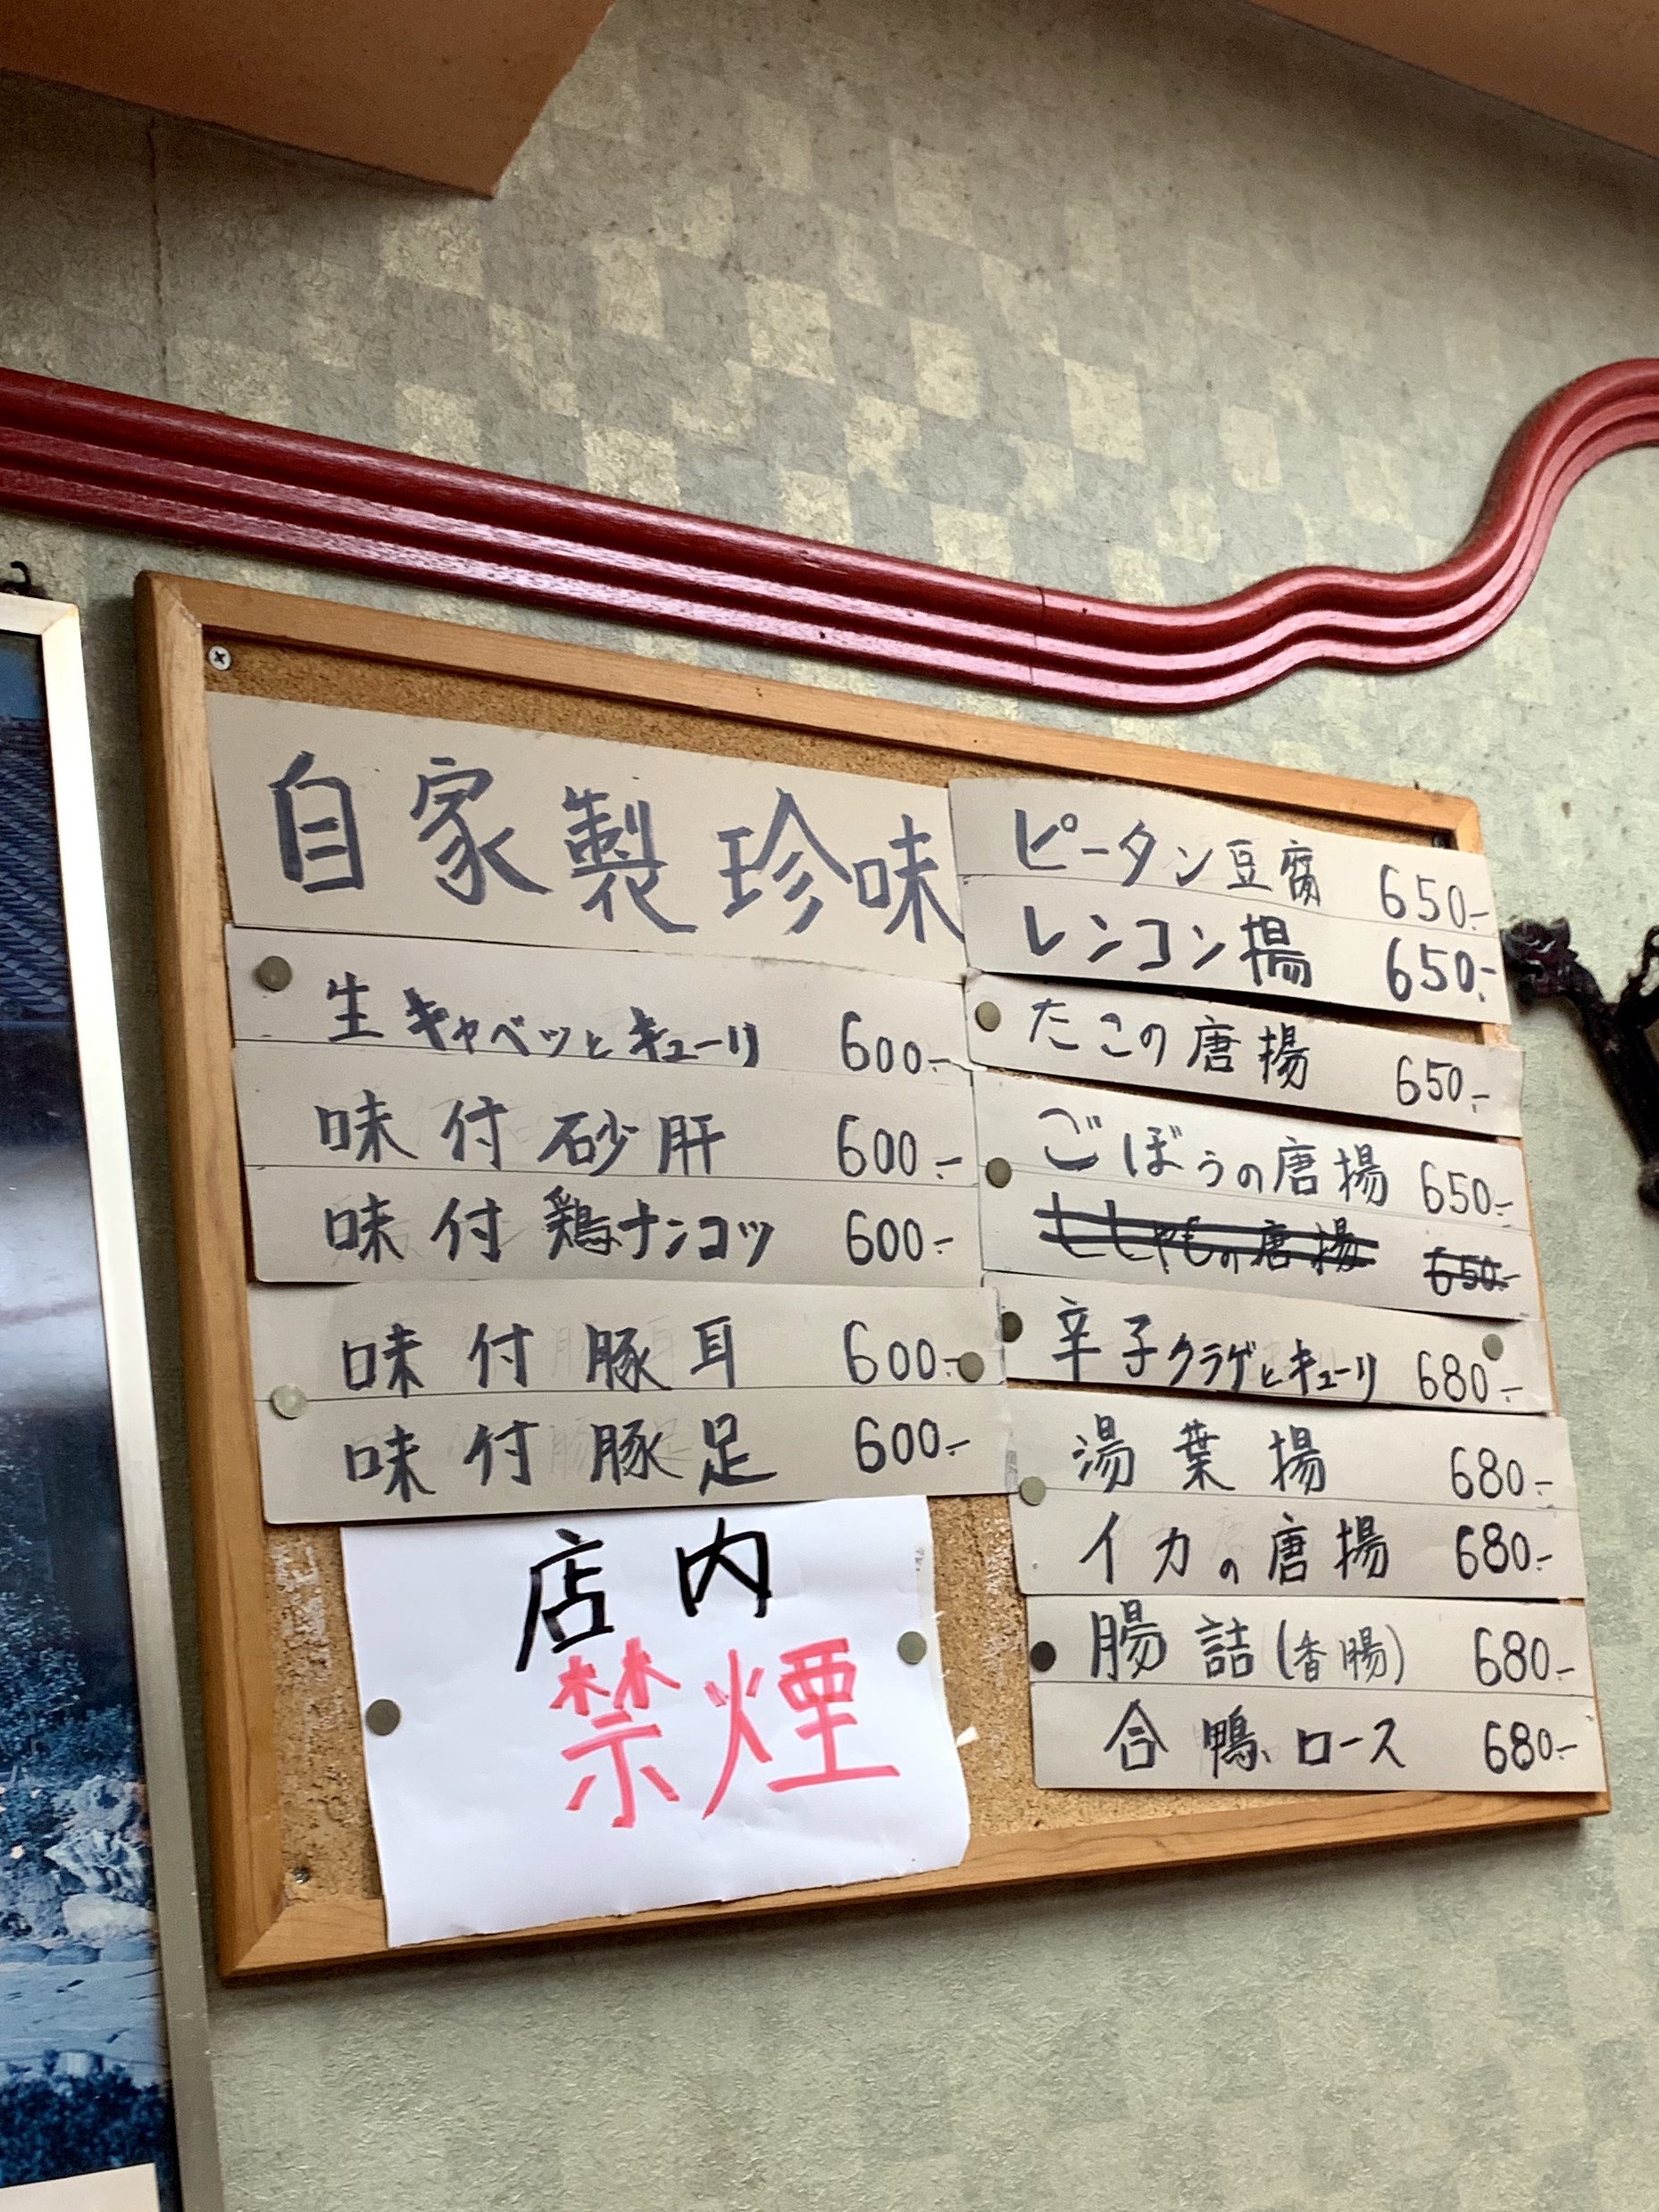 自家製珍味
生キャベツとキューリ 600.-
味付砂肝 600.-
味付鶏ナンコツ 600.-
味付豚耳 600.-
味付豚足 600.-
店内
禁煙
ピータン豆腐 650.-
レンコン揚 650.-
たこの唐揚 650.-
ごぼうの唐揚 650.-
ししゃもの唐揚 650.-
辛子クラゲとキューリ 680.-
湯葉揚 680.-
イカの唐揚 680.-
腸詰(香腸) 680.-
合鴨ロース 680.-